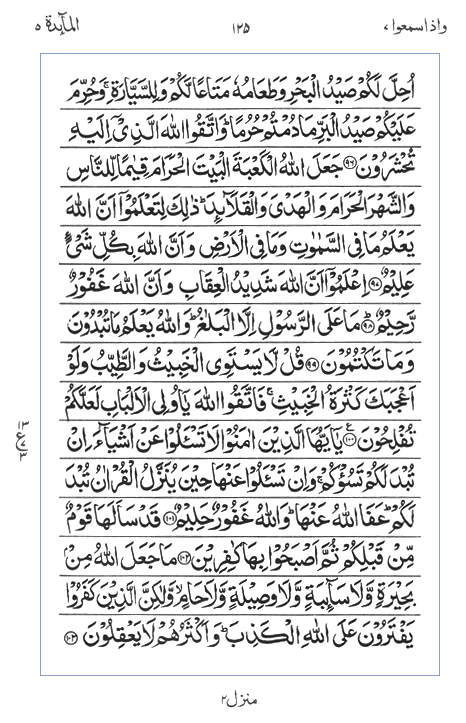 واذا سمعوا ٧ ١٢٥ المآئدة ٥
اُحِلَّ لَكُمْ صَيْدُ الْبَحْرِ وَطَعَامُهٗ مَتَاعًا لَّكُمْ وَلِلسَّيَّارَةِ ۚ وَحُرِّمَ
عَلَيْكُمْ صَيْدُ الْبَرِّ مَا دُمْتُمْ حُرُمًا ؕ وَاتَّقُوا اللّٰهَ الَّذِیْۤ اِلَيْهِ
تُحْشَرُوْنَ ﴿٩٦﴾ جَعَلَ اللّٰهُ الْكَعْبَةَ الْبَيْتَ الْحَرَامَ قِيٰمًا لِّلنَّاسِ
وَالشَّهْرَ الْحَرَامَ وَالْهَدْیَ وَالْقَلَآئِدَ ؕ ذٰلِكَ لِتَعْلَمُوْۤا اَنَّ اللّٰهَ
يَعْلَمُ مَا فِی السَّمٰوٰتِ وَمَا فِی الْاَرْضِ وَاَنَّ اللّٰهَ بِكُلِّ شَیْءٍ
عَلِيْمٌ ﴿٩٧﴾ اِعْلَمُوْۤا اَنَّ اللّٰهَ شَدِيْدُ الْعِقَابِ وَاَنَّ اللّٰهَ غَفُوْرٌ
رَّحِيْمٌ ﴿٩٨﴾ مَا عَلَی الرَّسُوْلِ اِلَّا الْبَلٰغُ ؕ وَاللّٰهُ يَعْلَمُ مَا تُبْدُوْنَ
وَمَا تَكْتُمُوْنَ ﴿٩٩﴾ قُلْ لَّا يَسْتَوِی الْخَبِيْثُ وَالطَّيِّبُ وَلَوْ
اَعْجَبَكَ كَثْرَةُ الْخَبِيْثِ ۚ فَاتَّقُوا اللّٰهَ يٰۤاُولِی الْاَلْبَابِ لَعَلَّكُمْ
تُفْلِحُوْنَ ﴿١٠٠﴾ ع يٰۤاَيُّهَا الَّذِيْنَ اٰمَنُوْا لَا تَسْئَلُوْا عَنْ اَشْيَآءَ اِنْ
تُبْدَ لَكُمْ تَسُؤْكُمْ ۚ وَاِنْ تَسْئَلُوْا عَنْهَا حِيْنَ يُنَزَّلُ الْقُرْاٰنُ تُبْدَ
لَكُمْ ؕ عَفَا اللّٰهُ عَنْهَا ؕ وَاللّٰهُ غَفُوْرٌ حَلِيْمٌ ﴿١٠١﴾ قَدْ سَاَلَهَا قَوْمٌ
مِّنْ قَبْلِكُمْ ثُمَّ اَصْبَحُوْا بِهَا كٰفِرِيْنَ ﴿١٠٢﴾ مَا جَعَلَ اللّٰهُ مِنْۢ
بَحِيْرَةٍ وَّلَا سَآئِبَةٍ وَّلَا وَصِيْلَةٍ وَّلَا حَامٍ ۙ وَّلٰكِنَّ الَّذِيْنَ كَفَرُوْا
يَفْتَرُوْنَ عَلَی اللّٰهِ الْكَذِبَ ؕ وَاَكْثَرُهُمْ لَا يَعْقِلُوْنَ ﴿١٠٣﴾
ع
٣
منزل ٢